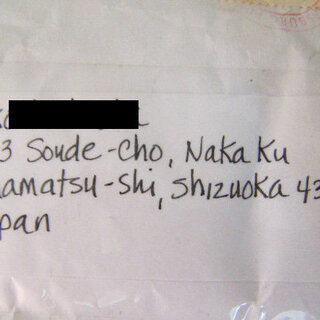 3 Soude-Cho, Naka Ku
amatsu-Shi, Shizuoka 43
pan